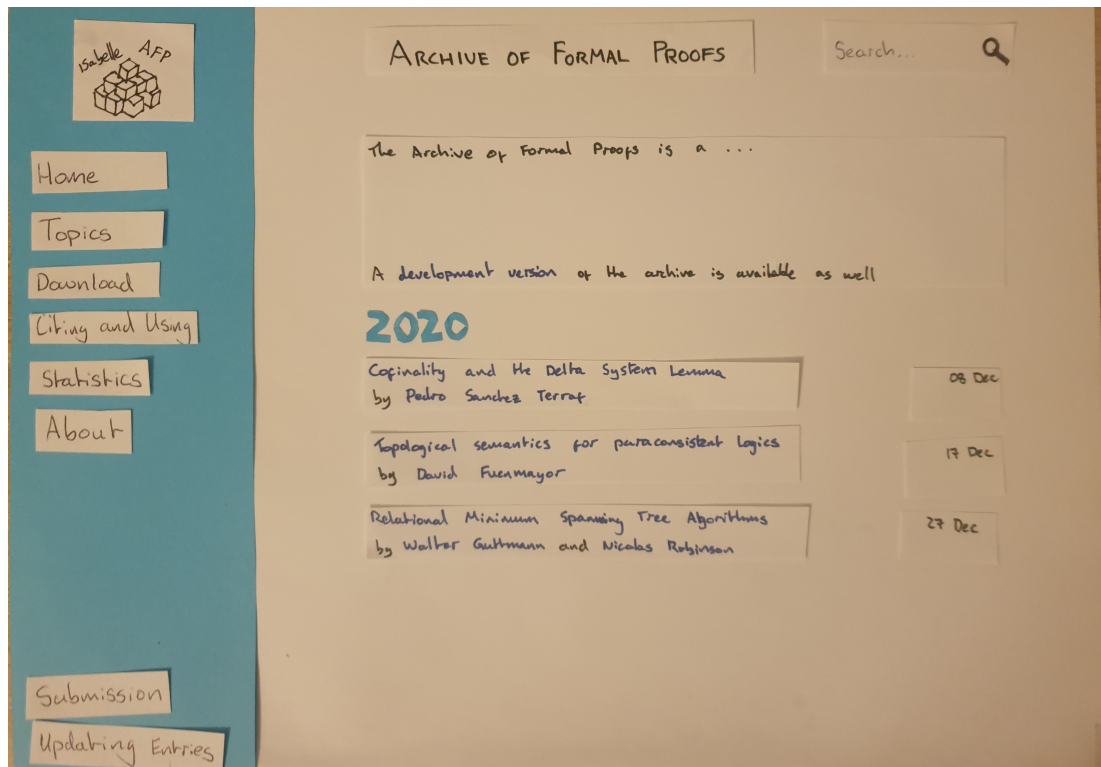 Isabelle AFP
Home
Topics
Download
Citing and Using
Statistics
About
Submission
Updating Entries
ARCHIVE OF FORMAL PROOFS
Search...
The Archive of Formal Proofs is a ...
A development version of the archive is available as well
2020
Cofinality and the Delta System Lemma
by Pedro Sanchez Terraf
08 Dec
Topological semantics for paraconsistent logics
by David Fuenmayor
17 Dec
Relational Minimum Spanning Tree Algorithms
by Walter Guttmann and Nicolas Robinson
27 Dec